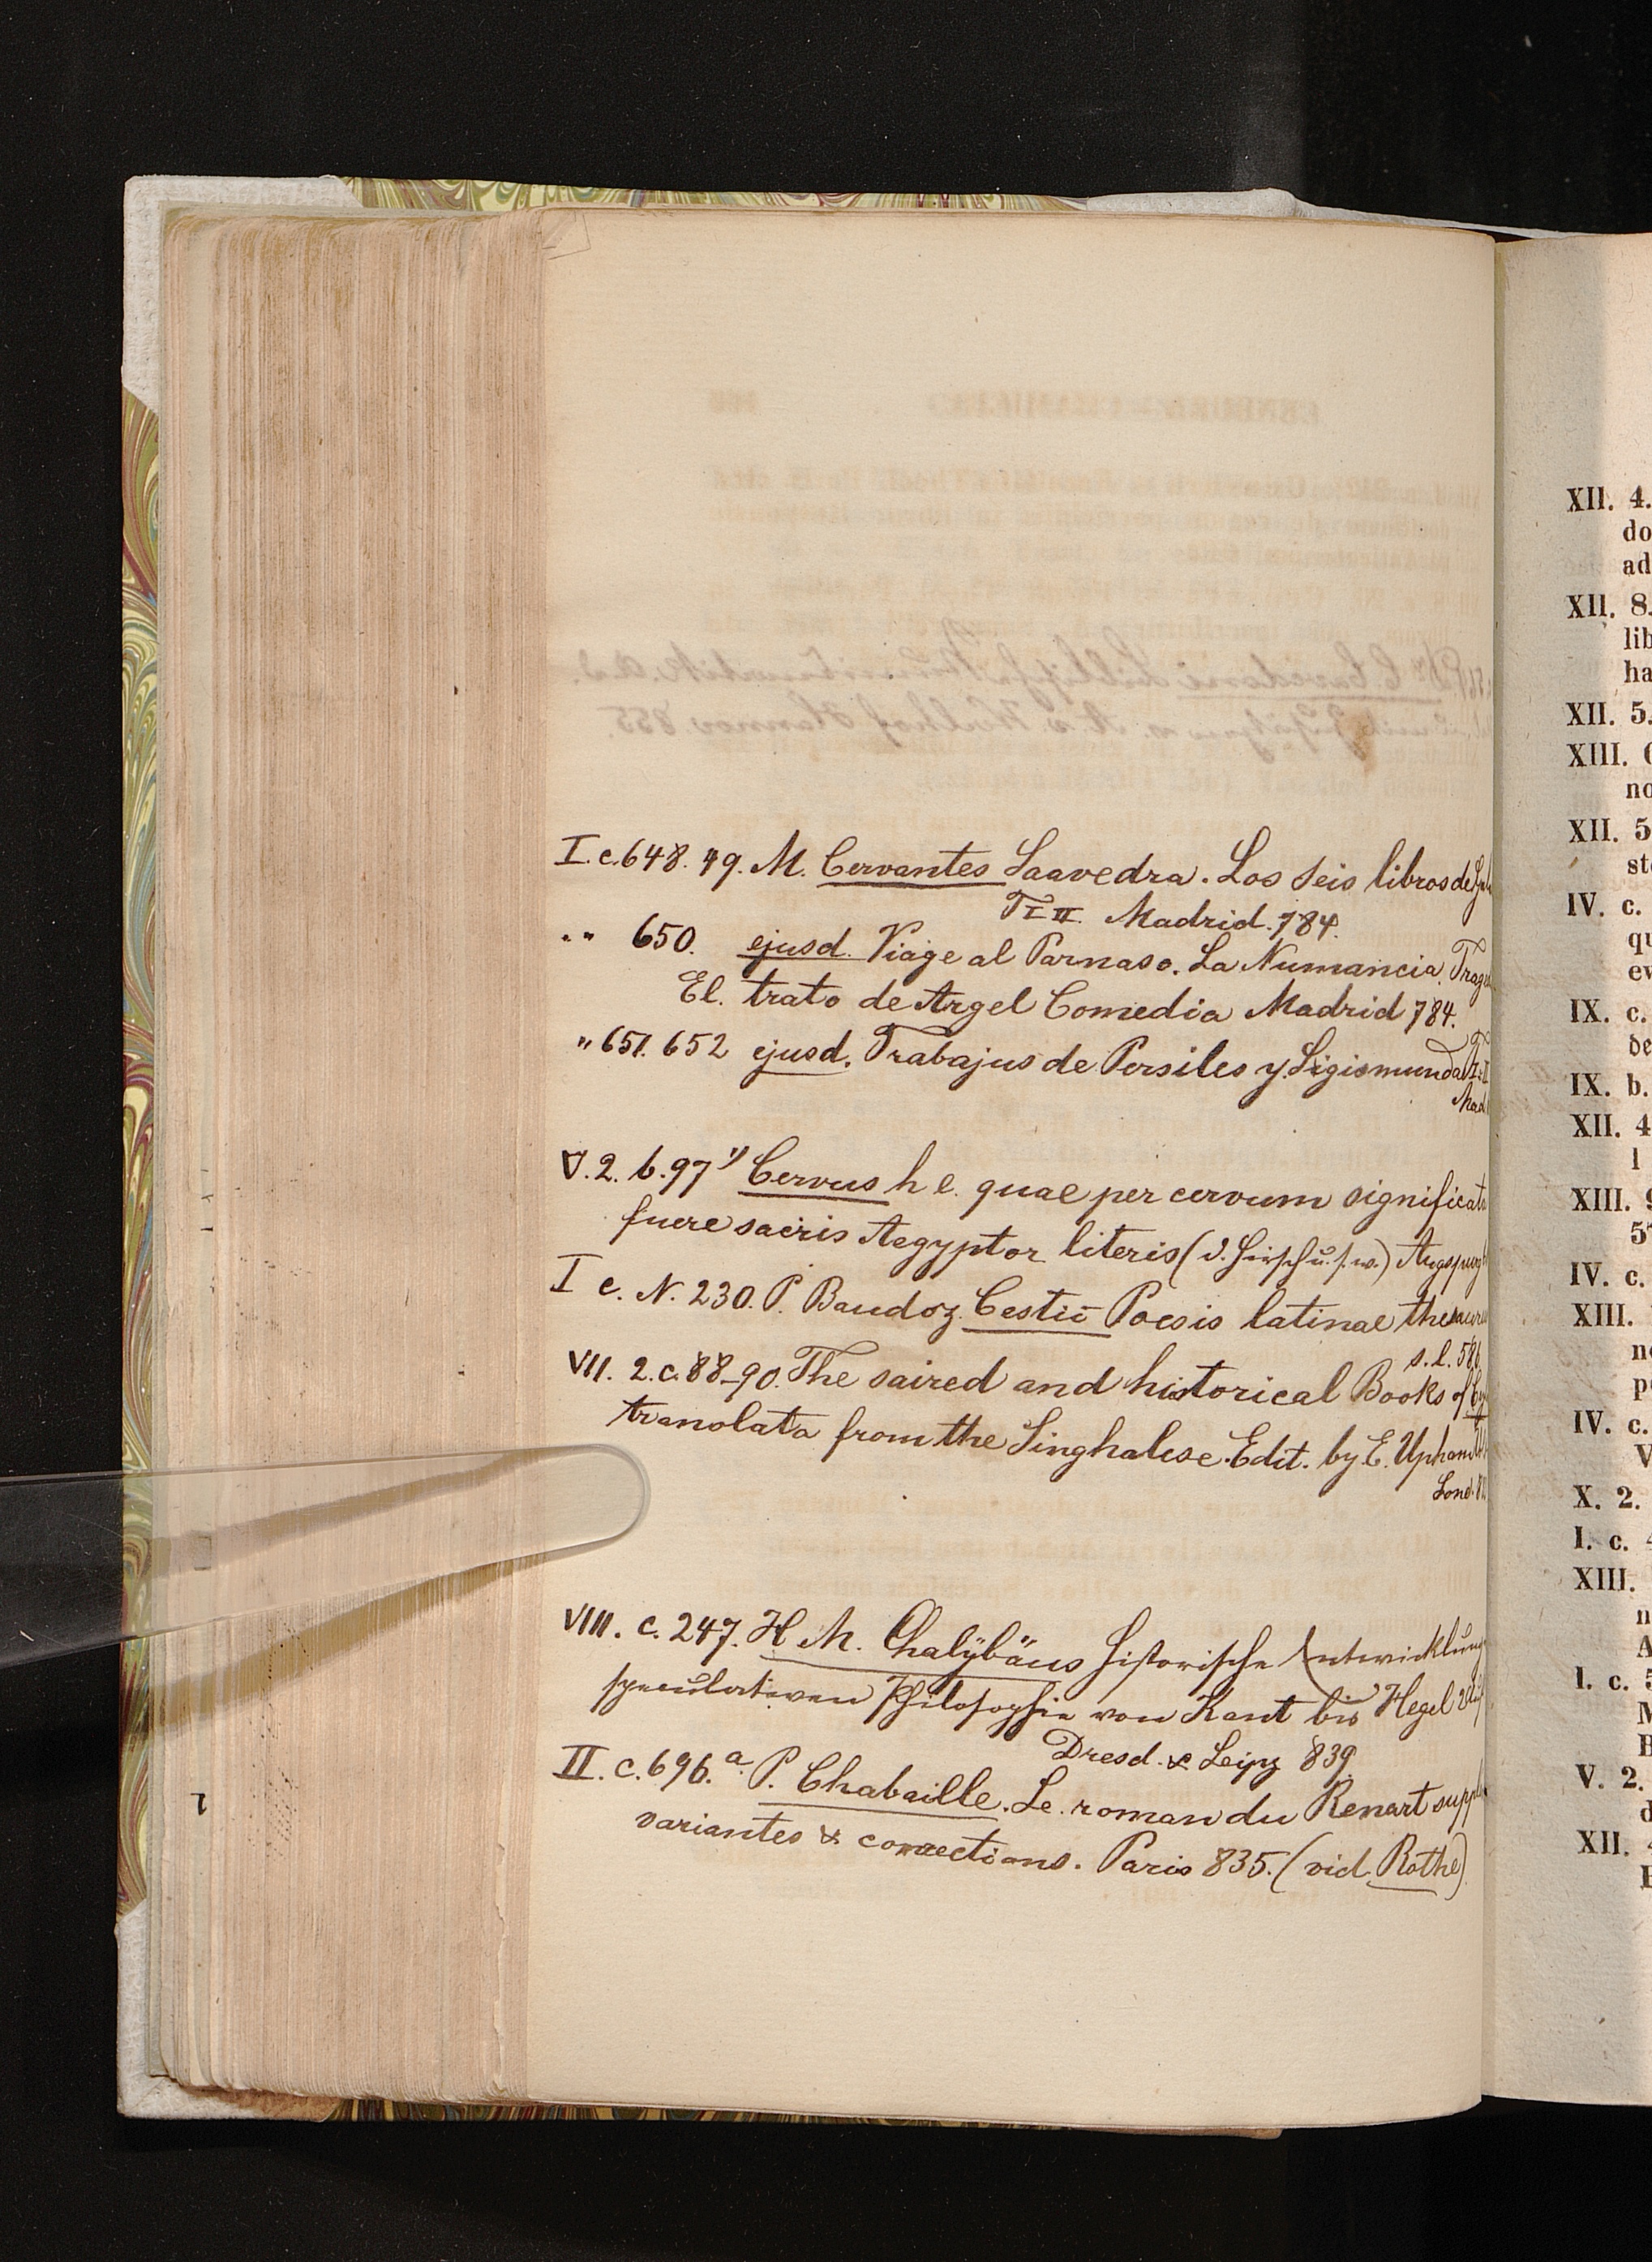 I. c. 648. 49. M. Cervantes Saavedra. Los seis libros de
T I II. Madrid. 784.
" " 650. ejusd. Viage al Parnaso. La Numancia. Trag
El. trato de Argel Comedia Madrid 784.
" 651. 652 ejusd. Trabajus de Persiles y Sigismunda T. I. II
Mad
V. 2. b. 97 Cervus h e. quae per cervum significata
fuere sacris Aegyptor literis (v. Hirsch u. s. w.) Augspurg
I c. N. 230. P. Baudoz Cestii Poesis latinae thesaurus
s. l. 586
VII. 2. c. 88-90. The saired and historical Books of
translata from the Singhalese. Edit. by E. Upham
Lond. 8
VIII. c. 247. H M. Chalÿbäus Historische Entwicklung
speculativen Philosophie von Kant bis Hegel 2 Aufl
Dresd. & Leipz 839.
II. c. 696.a P. Chabaille. Le roman du Renart suppl
variantes & corrections. Paris 835. (vid. Rothe)
XII. 4.
do
ad
XII. 8.
lib
ha
XII. 5.
XIII.
no
XII. 5
st
IV. c.
qu
ev
IX. c.
de
IX. b.
XII. 4
l
XIII. 9
5
IV. c.
XIII.
n
p
IV. c.
V
X. 2.
I. c. 4
XIII.
n
A
I. c. 5
M
B
V. 2.
d
XII. 4